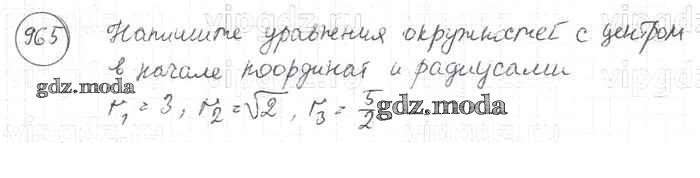 965 Напишите уравнения окружностей с центром
в начале координат и радиусами
r₁ = 3, r₂ = √2, r₃ = 5/2
gdz.moda
gdz.moda